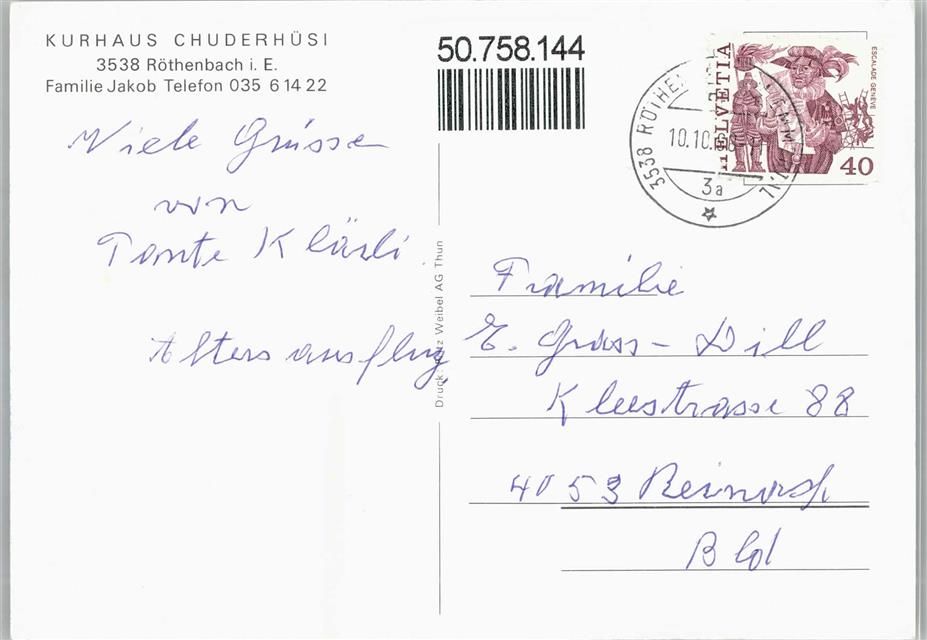 KURHAUS CHUDERHÜSI
3538 Röthenbach i. E.
Familie Jakob Telefon 035 6 14 22
Viele Grüsse
von
Tante Kläsli
Altersausflug
Druck: Weibel AG Thun
50.758.144
3538 RÖTHE
10.10.
3a
HELVETIA
ESCALADE GENÈVE
40
Familie
E. Grass-Dill
Kleestrasse 88
4053 Reinach
Bld